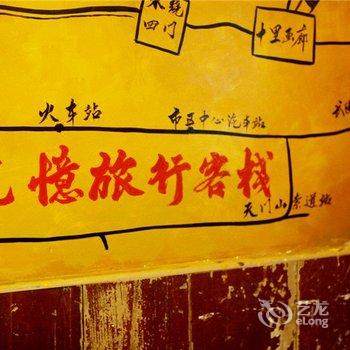 四门
十里画廊
火车站
市区中心汽车站
武
憶旅行客栈
天门山索道站
艺龙
eLong